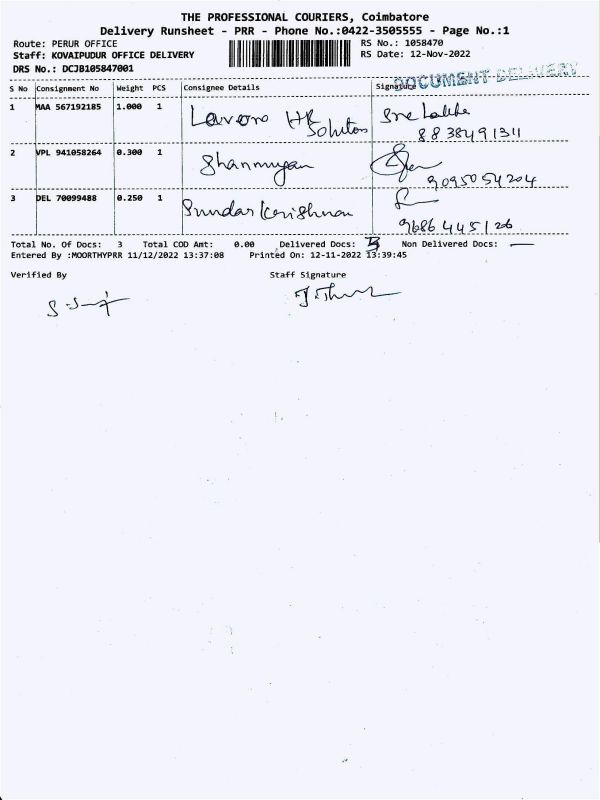 THE PROFESSIONAL COURIERS, Coimbatore
Delivery Runsheet - PRR - Phone No.:0422-3505555 - Page No.:1
Route: PERUR OFFICE
RS No.: 1058470
Staff: KOVAIPUDUR OFFICE DELIVERY
RS Date: 12-Nov-2022
DRS No.: DCJB105847001
DOCUMENT DELIVERY
S No Consignment No Weight PCS Consignee Details Signature
1 MAA 567192185 1.000 1
HR Solutions
8838491311
2 VPL 941058264 0.300 1 Shanmugan
9095054204
3 DEL 70099488 0.250 1 Sundar Krishnan
9686445126
Total No. Of Docs: 3 Total COD Amt: 0.00 Delivered Docs: 3 Non Delivered Docs: —
Entered By :MOORTHYPRR 11/12/2022 13:37:08 Printed On: 12-11-2022 13:39:45
Verified By Staff Signature